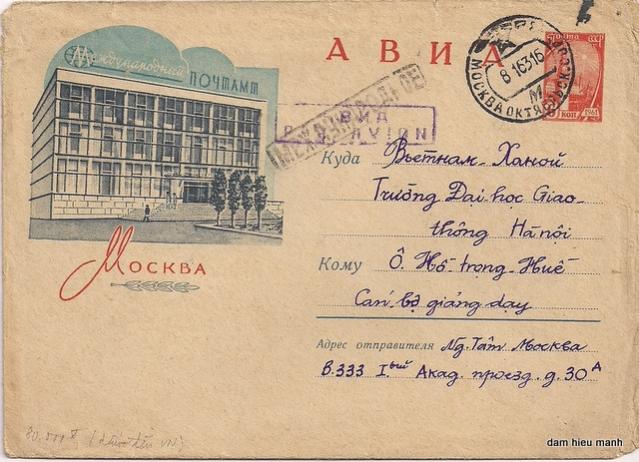 Международный
ПОЧТАМТ
АВИА
ПОЧТА СССР
1961
КОП
МОСКВА
8 1 63 16
МЕЖДУНАРОДНОЕ
АВИА
PAR AVION
Куда Вьетнам - Ханой
Trường Đại học Giao-
thông Hà nội
Кому Ô. Hồ trọng Huế
Cán bộ giảng dạy
Адрес отправителя Ng. Tâm Москва
В.333 Iый Акад. проезд. д. 30А
Москва
80.000đ
dam hieu manh